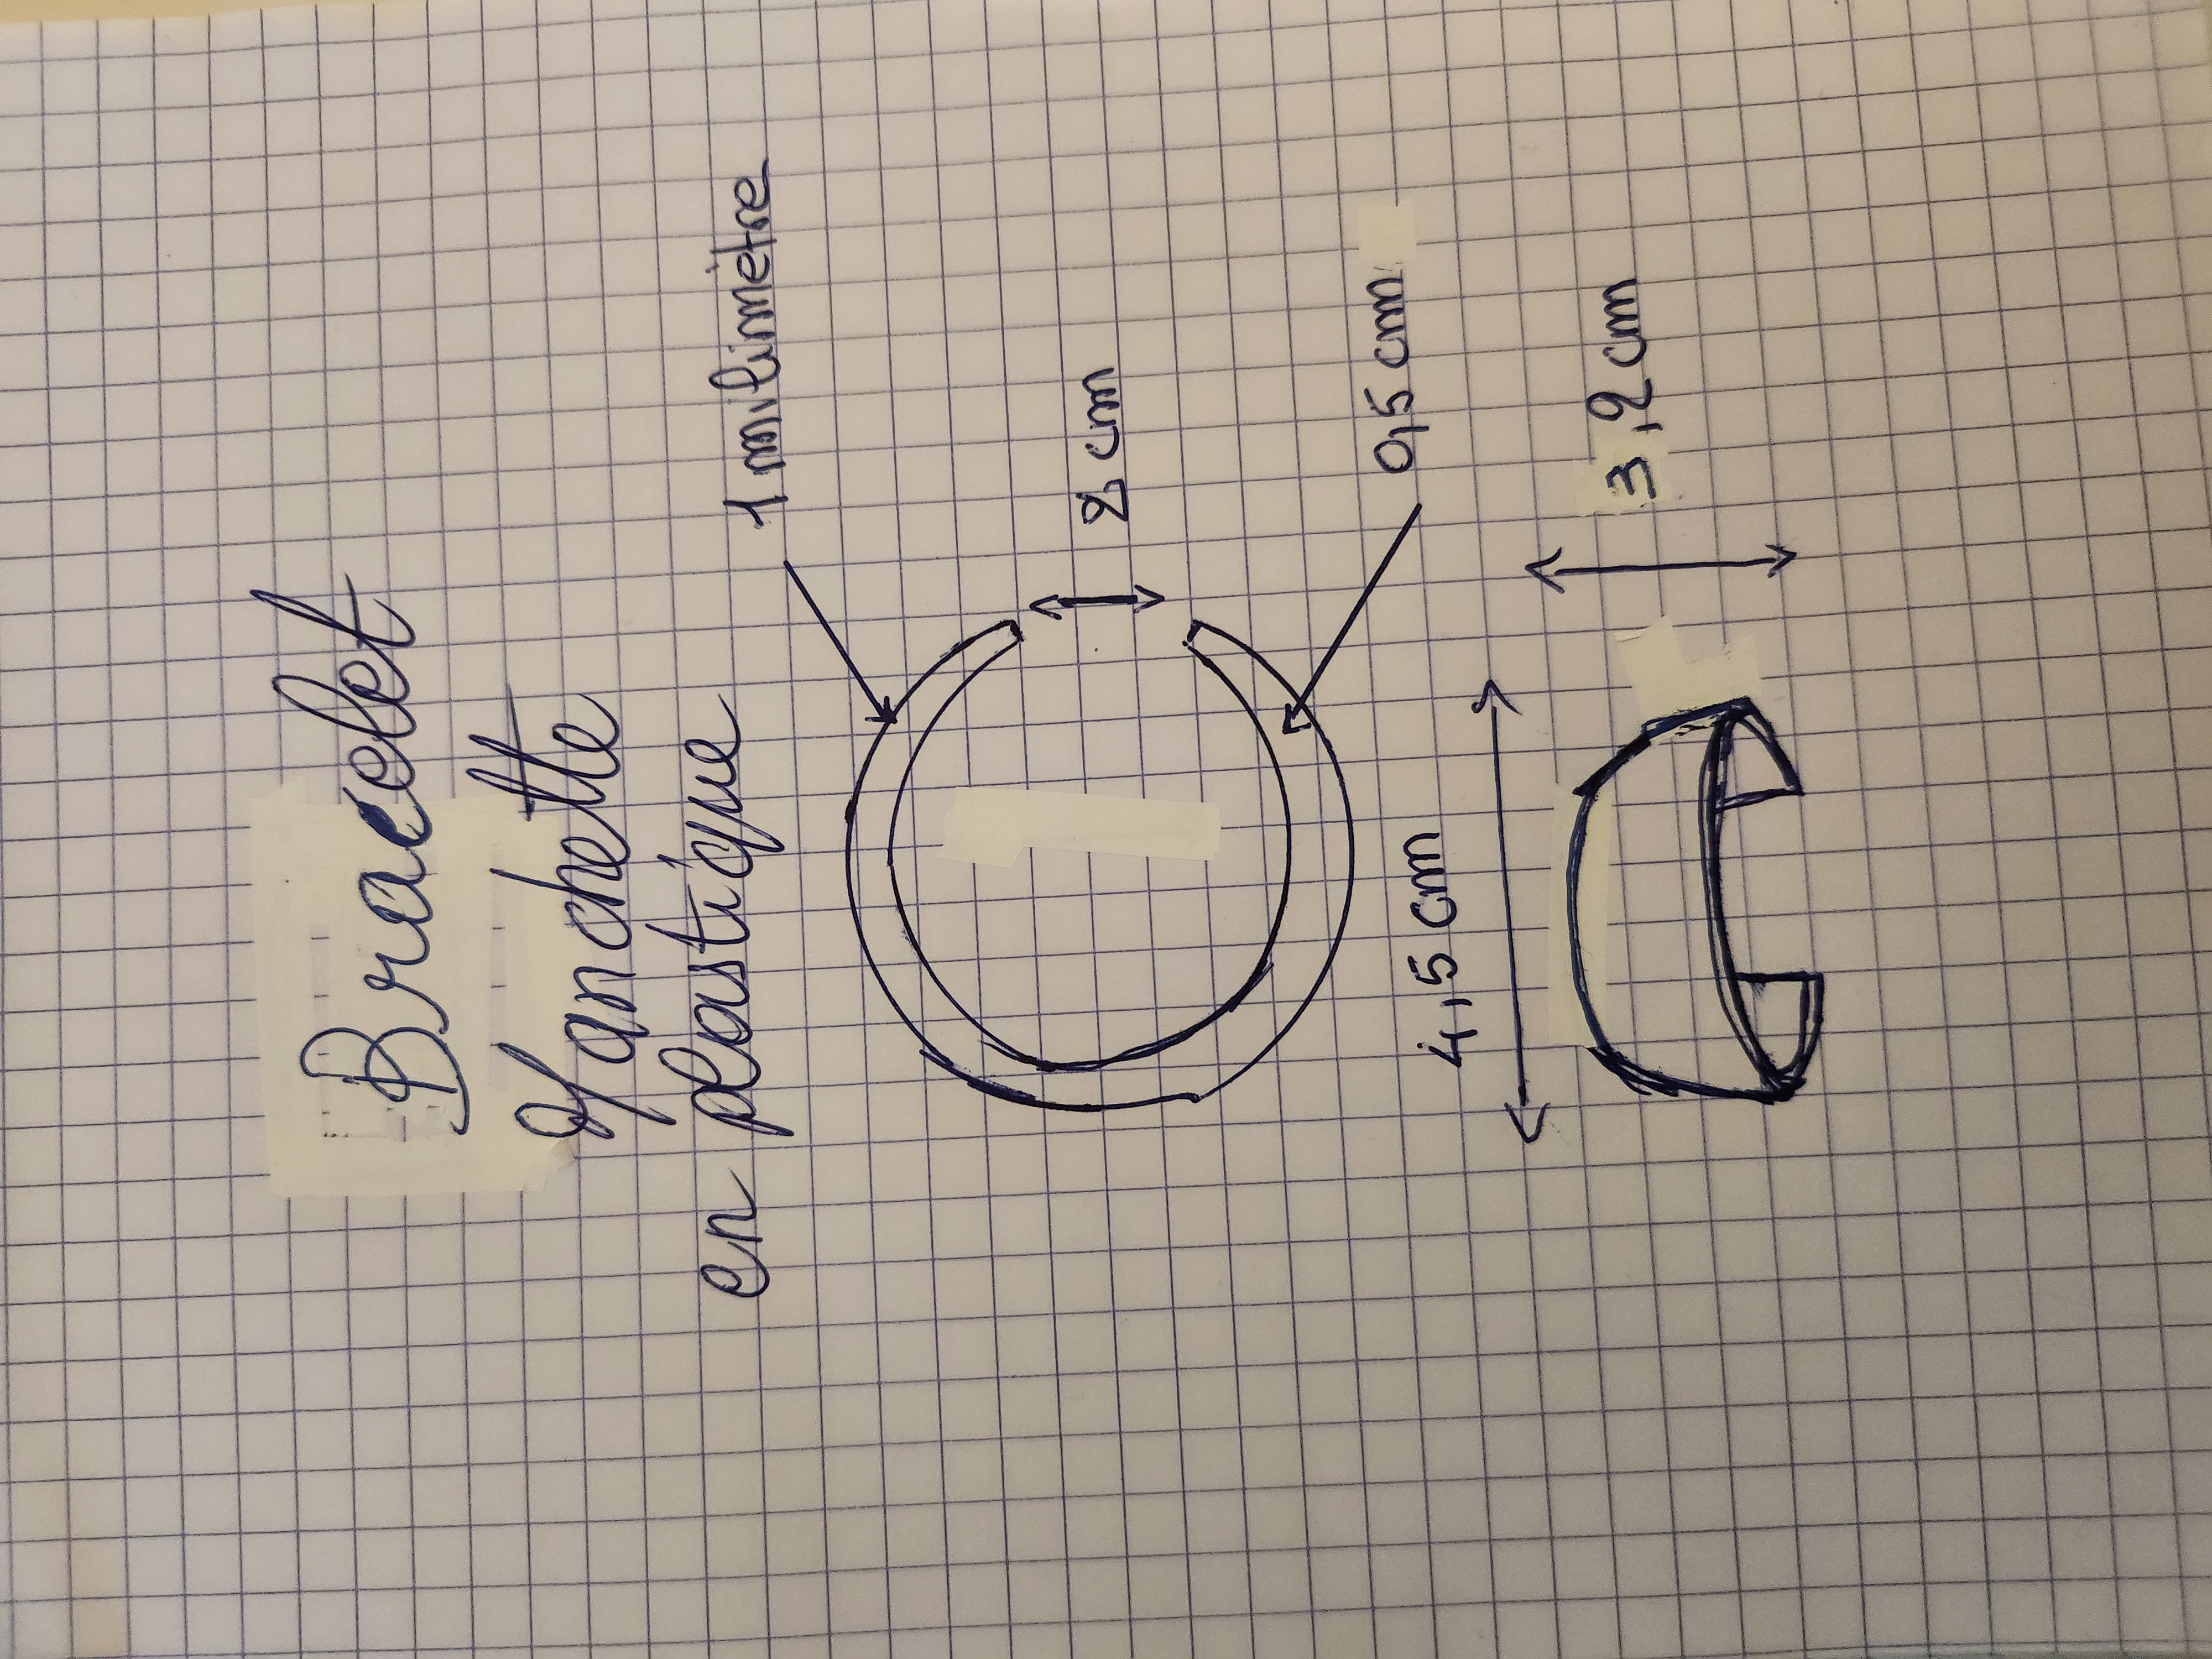 Bracelet
Manchette
en plastique
1 milimètre
2 cm
0,5 cm
4,5 cm
3,2 cm